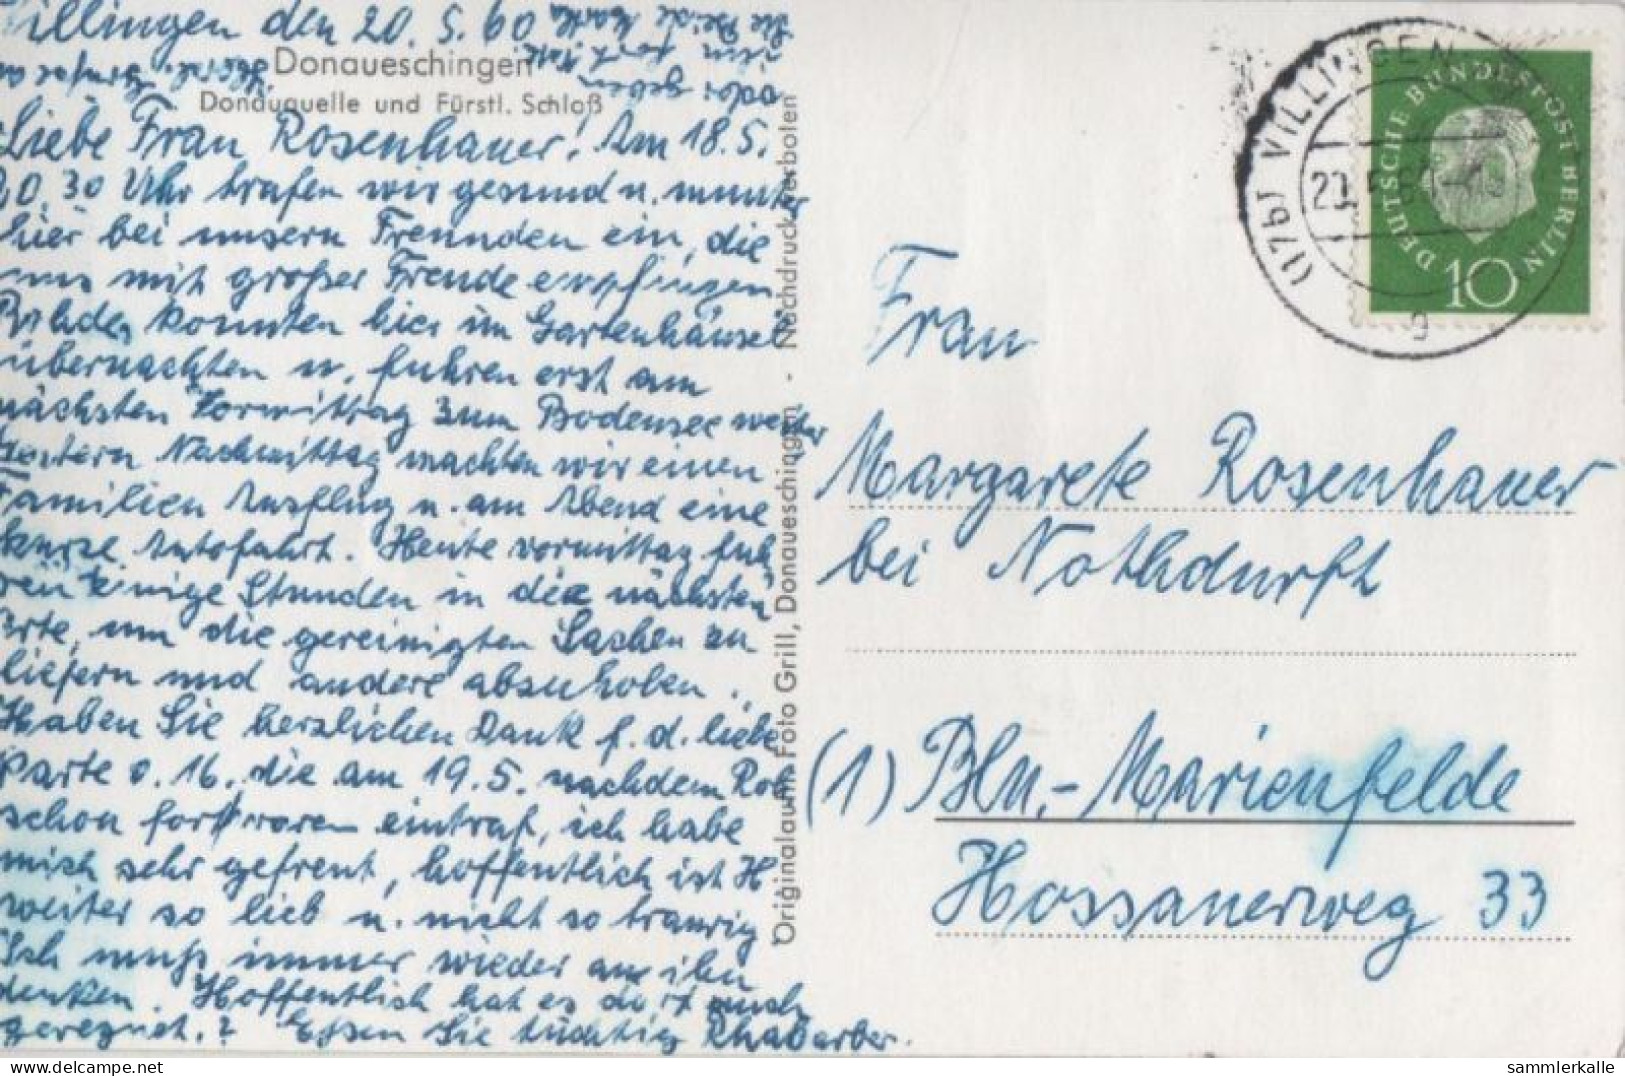 Villingen den 20. 5. 60
Donaueschingen
Donauquelle und Fürstl. Schloß
Liebe Frau Rosenhauer! Am 18.5.
20.30 Uhr trafen wir gesund u. munter
hier bei unsern Freunden ein, die
uns mit großer Freude empfingen
konnten hier im Gartenhäusel
übernachten u. fuhren erst am
nächsten Vormittag zum Bodensee weiter
Gestern Nachmittag machten wir einen
Familien Ausflug u. am Abend eine
kurze Autofahrt. Heute vormittag fuh
ren einige Stunden in die nächsten
Orte, um die gereinigten Sachen zu
liefern und andere abzuholen.
Haben Sie herzlichen Dank f. d. liebe
Karte v. 16. die am 19.5. nachdem
schon fort waren eintraf, ich habe
mich sehr gefreut, hoffentlich ist H.
weiter so lieb u. nicht so traurig
Ich muß immer wieder an ihn
denken. Hoffentlich hat es dort auch
geregnet.? Essen Sie tüchtig Rhabarber.
Originalaufn. Foto Grill, Donaueschingen - Nachdruck verboten
(17b) VILLINGEN
DEUTSCHE BUNDESPOST BERLIN
10
g
Frau
Margarete Rosenhauer
bei Nothdurft
(1) Bln.-Marienfelde
Hossauerweg 33
sammlerkalle